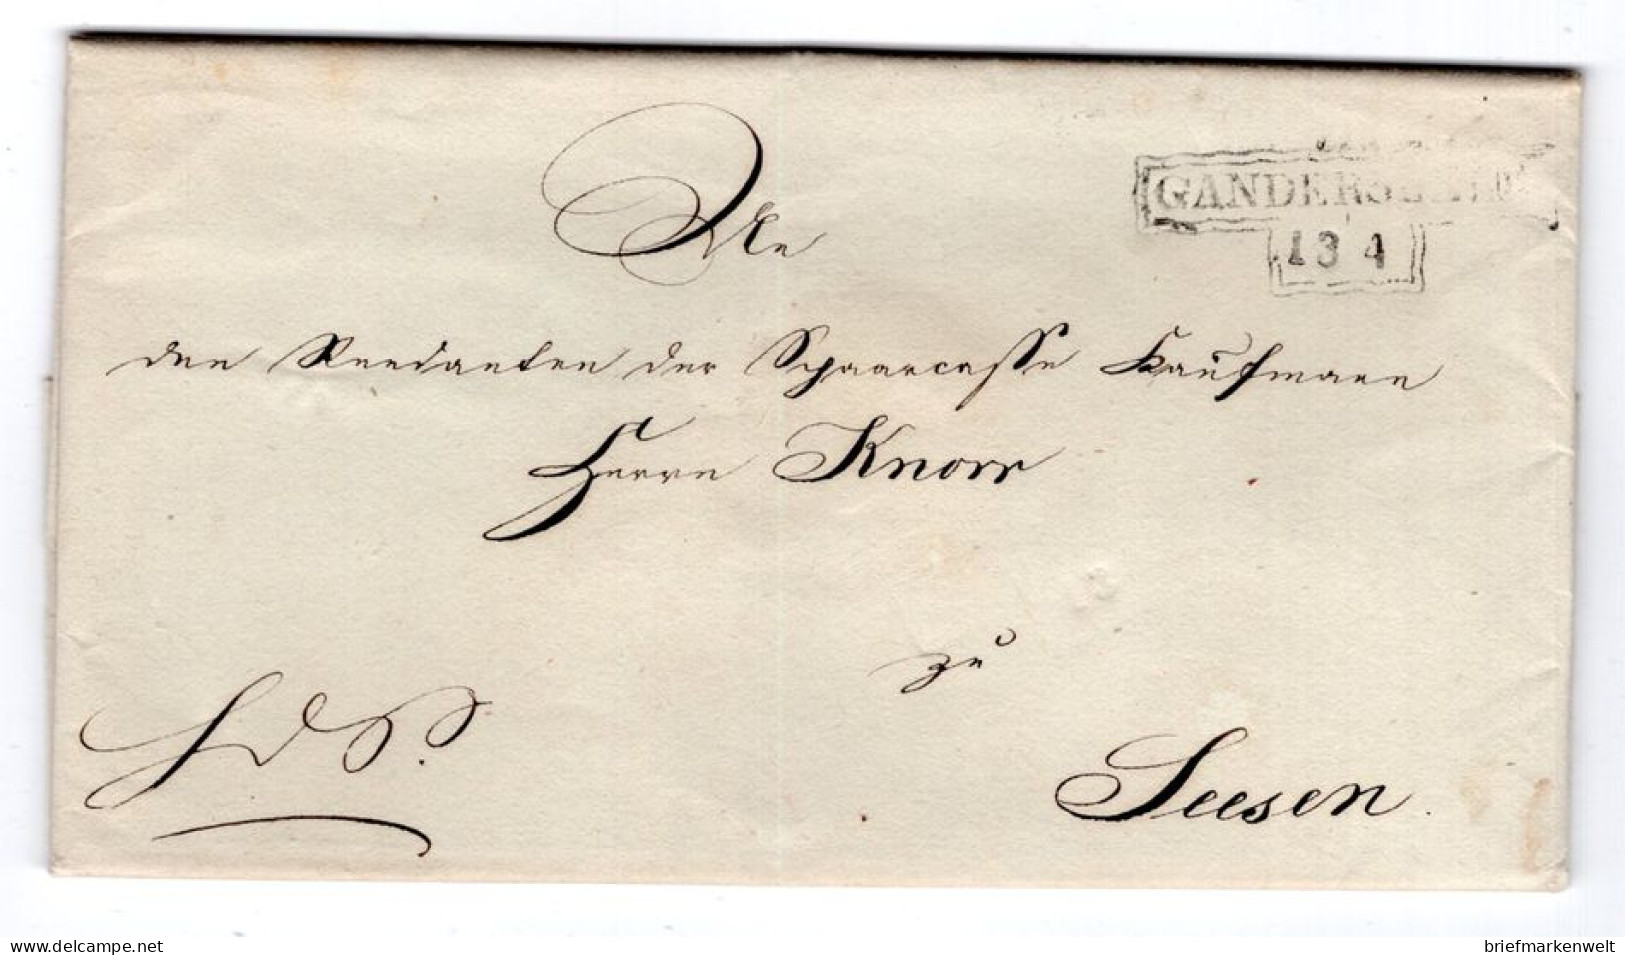 GANDERSHEIM
13 4
An
den Rendanten der Spaarcasse Kaufmann
Herrn Knorr
zu
Seesen.
delcampe.net
briefmarkenwelt